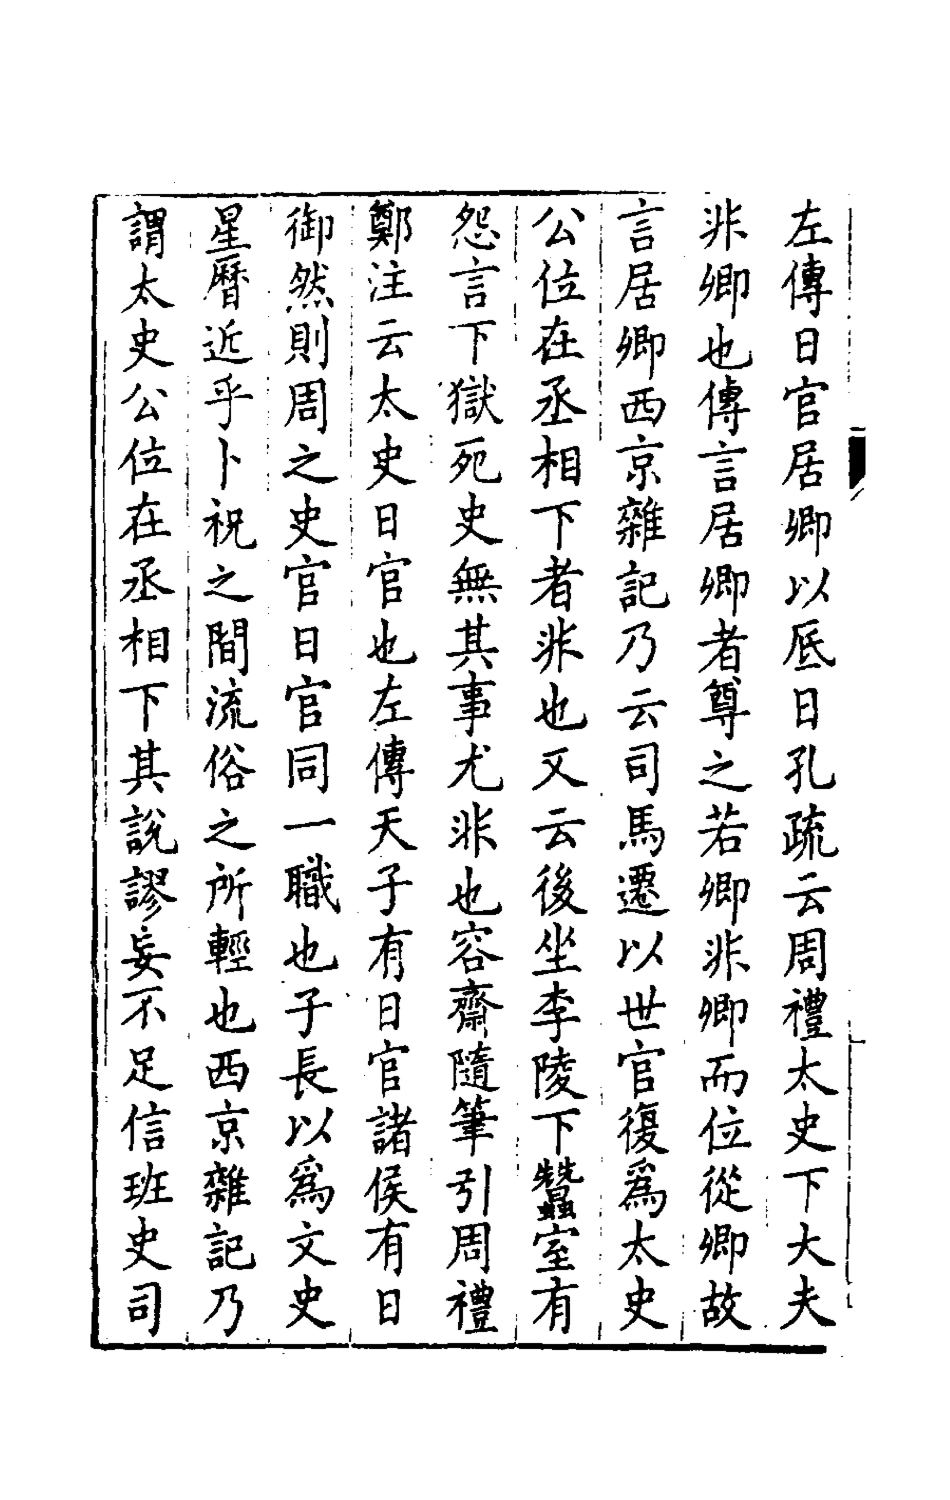 左傳日官居卿以底日孔疏云周禮太史下大夫
非卿也傳言居卿者尊之若卿非卿而位從卿故
言居卿西京雜記乃云司馬遷以世官復爲太史
公位在丞相下者非也又云後坐李陵下蠶室有
怨言下獄死史無其事尤非也容齋隨筆引周禮
鄭注云太史日官也左傳天子有日官諸侯有日
御然則周之史官日官同一職也子長以爲文史
星曆近乎卜祝之間流俗之所輕也西京雜記乃
謂太史公位在丞相下其說謬妄不足信班史司